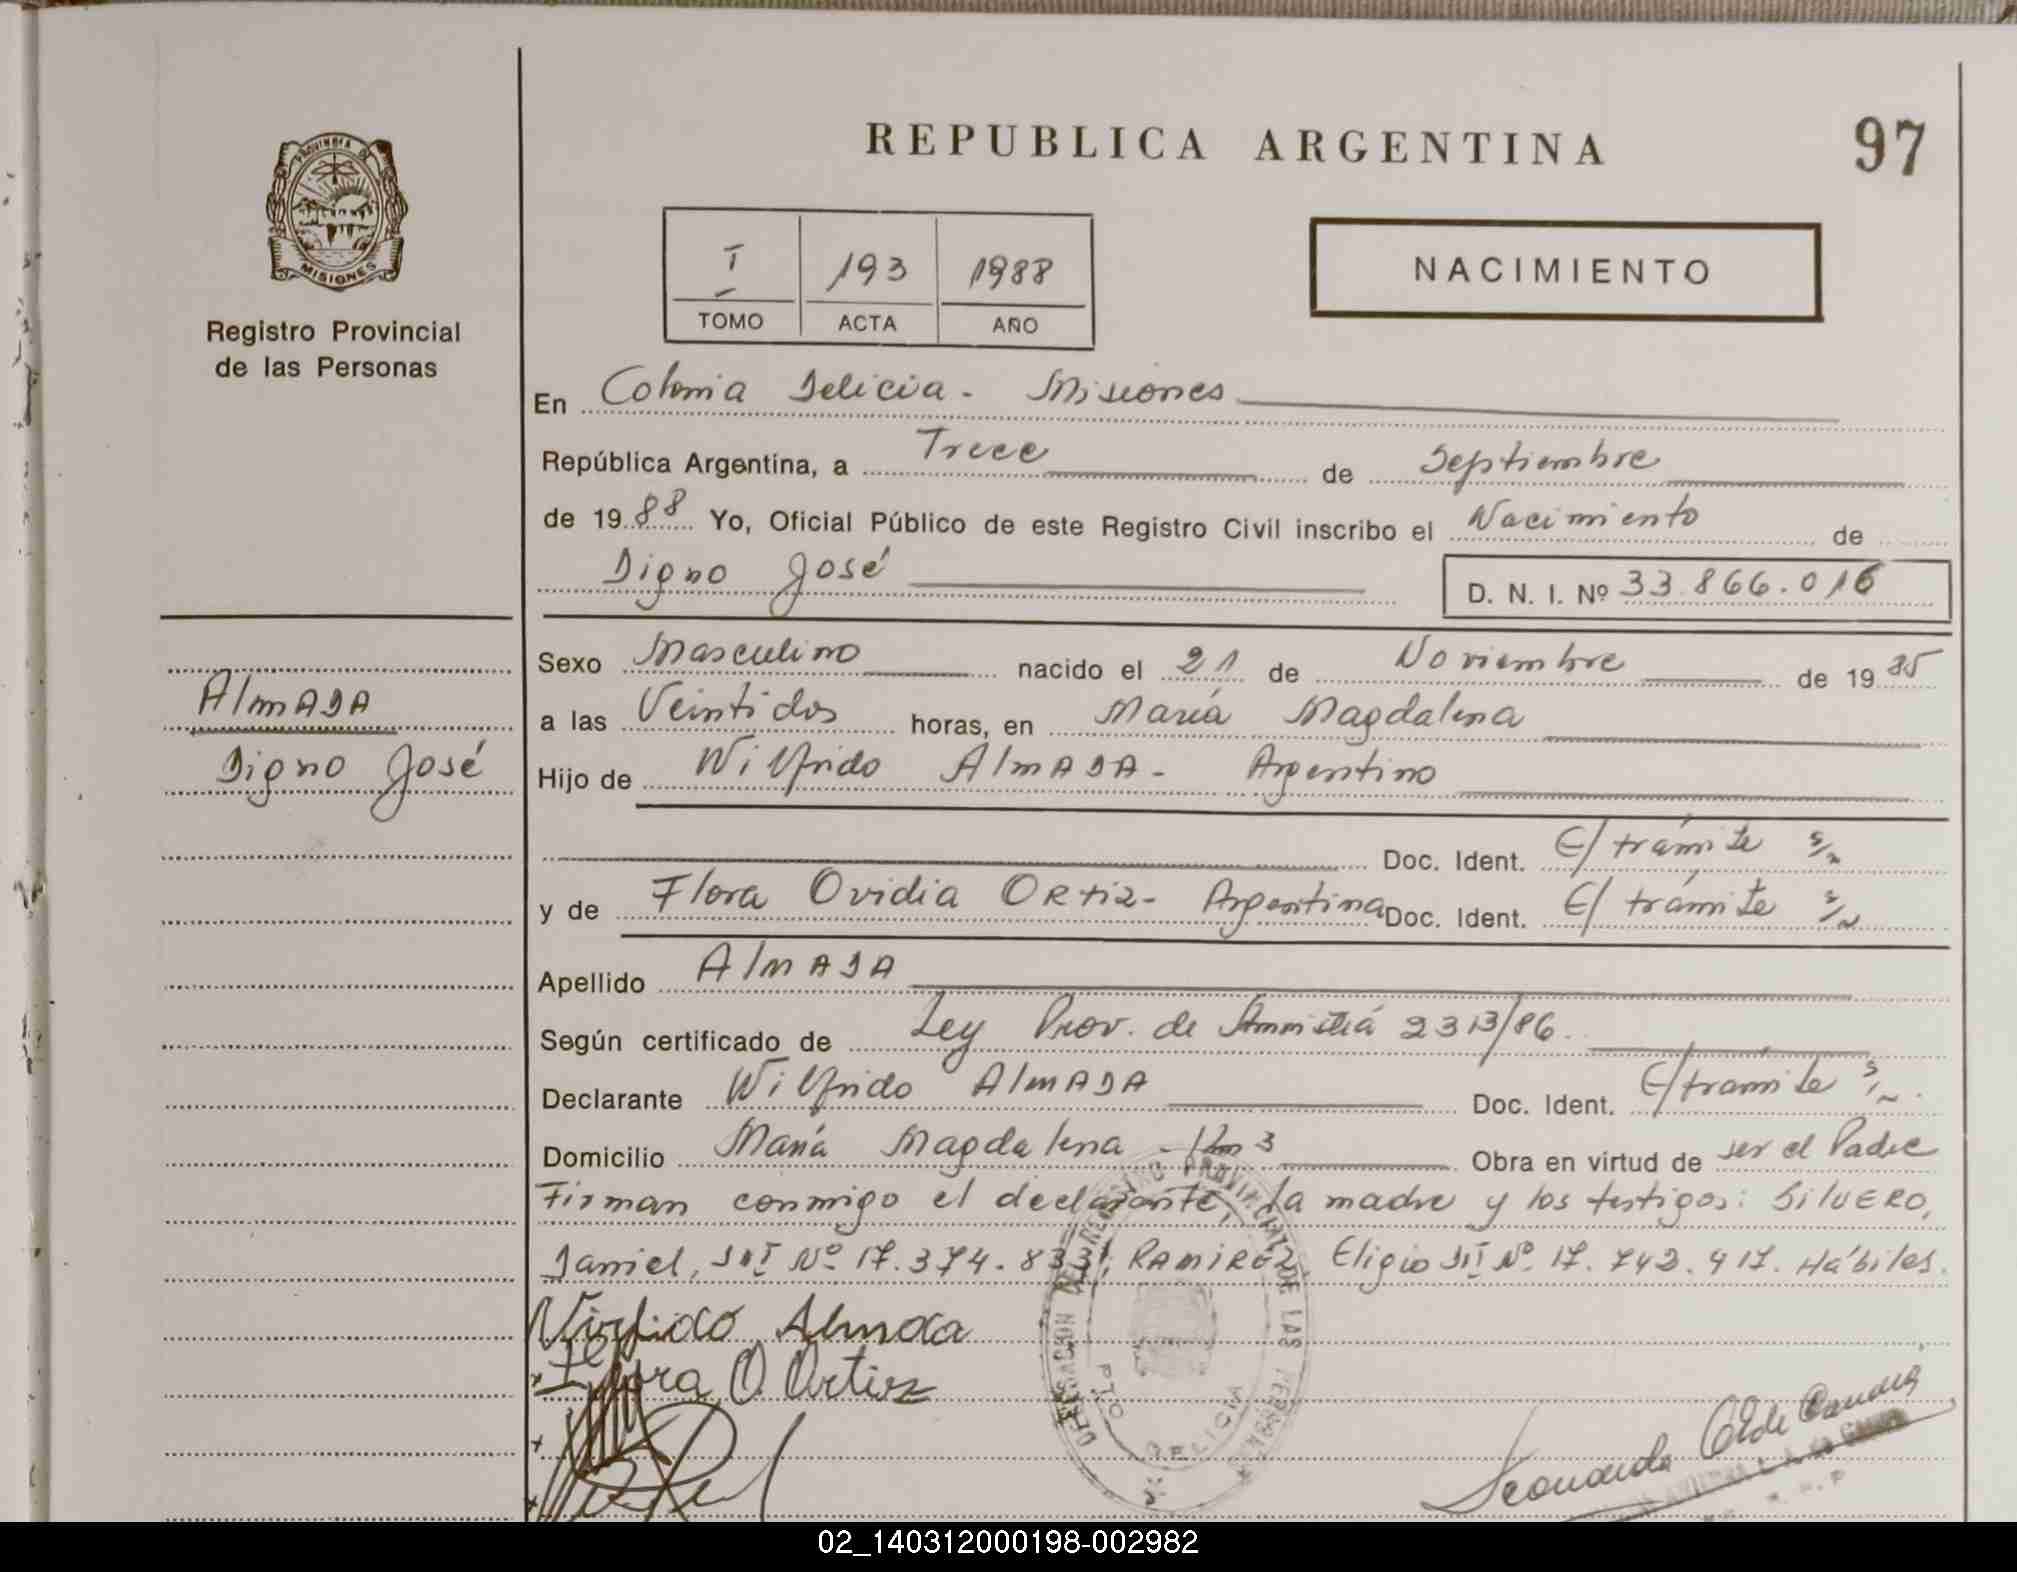 REPUBLICA ARGENTINA
97
PROVINCIA DE
MISIONES
Registro Provincial
de las Personas
I 193 1988
TOMO ACTA AÑO
NACIMIENTO
En Colonia Delicia - Misiones
República Argentina, a Trece de Septiembre
de 1988 Yo, Oficial Público de este Registro Civil inscribo el Nacimiento de
Digno José D. N. I. Nº 33.866.016
Sexo Masculino nacido el 21 de Noviembre de 1985
a las Veintidos horas, en María Magdalena
Hijo de Wilfrido AlmADA - Argentino
Doc. Ident. E/ trámite s/n
y de Flora Ovidia ORtiz - Argentina Doc. Ident. E/ trámite s/n
Apellido AlmADA
Según certificado de Ley Prov. de Amnistiá 2313/86.
Declarante Wilfrido AlmADA Doc. Ident. E/ trámite s/n.
Domicilio María Magdalena - Km 3 Obra en virtud de ser el Padre
Firman conmigo el declarante, la madre y los testigos: SilVERO,
Daniel, DNI Nº 17.374.833; RAMIREZ, Eligio DNI Nº 17.742.417. Hábiles.
AlmADA
Digno José
Almada
O. Ortiz
DELEGACION DEL REGISTRO PROVINCIAL DE LAS PERSONAS
PTO DELICIA
02_140312000198-002982